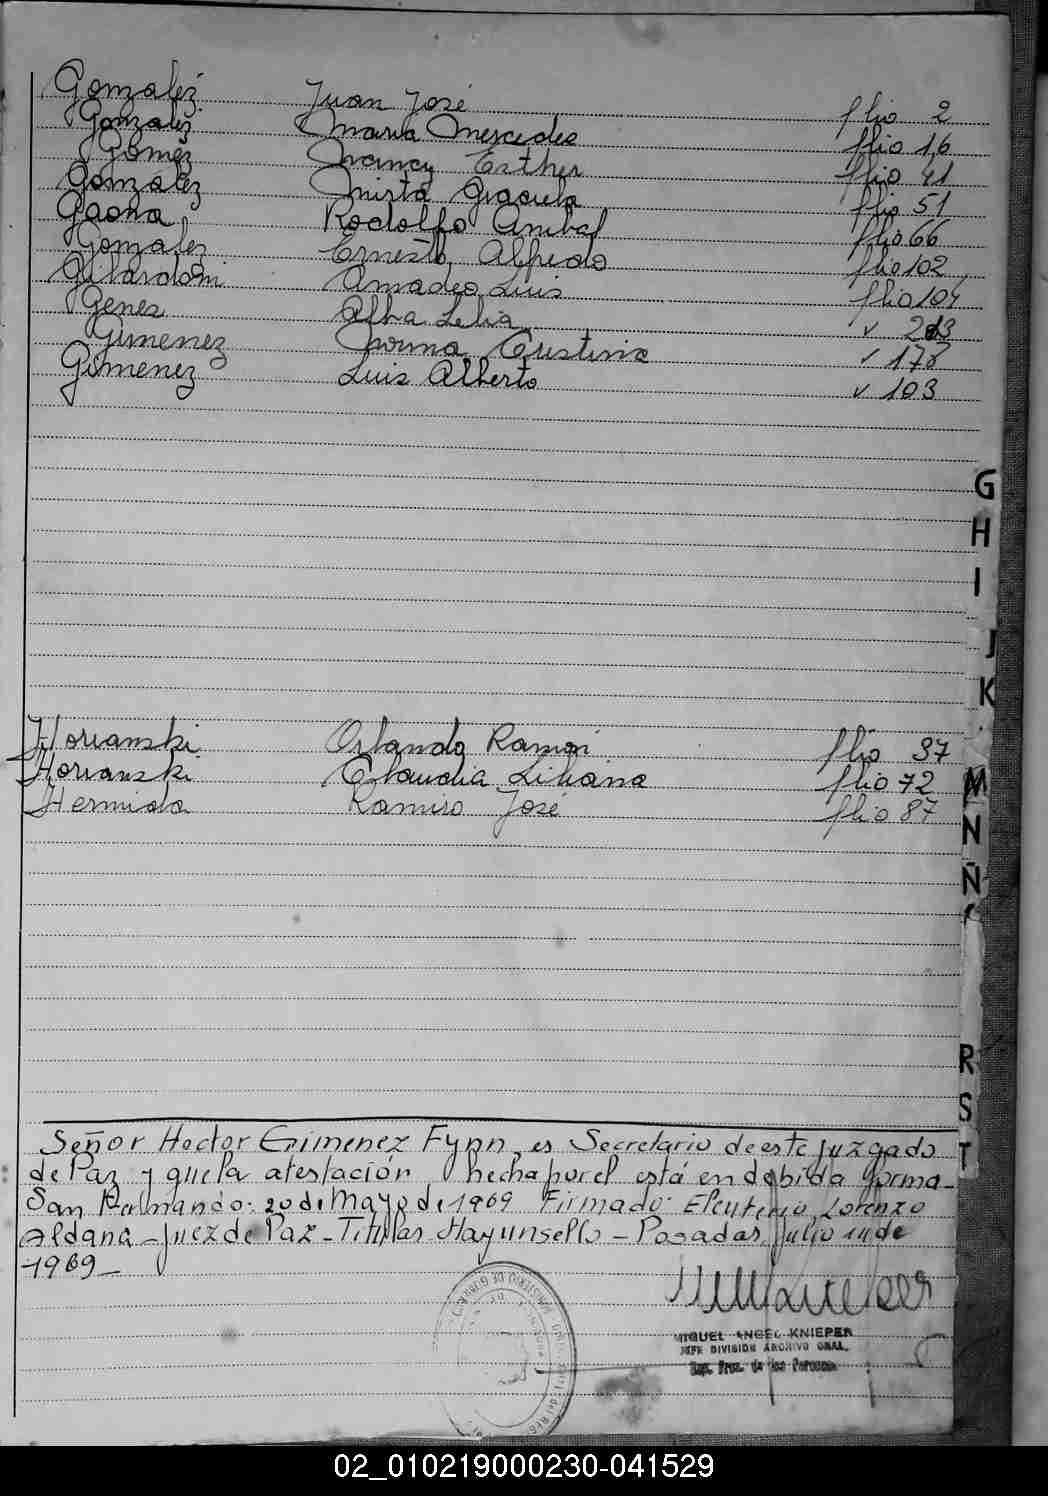 Gonzalez Juan José flio 2
Gonzalez Maria Mercedes flio 16
Gomez Nancy Esther flio 41
Gonzalez Mirta Graciela flio 51
Gaona Rodolfo Anibal flio 66
Gonzalez Ernesto Alfredo flio 102
Gilardoni Amadeo Luis flio 104
Genes Alba Lelia 213
Gimenez Norma Cristina 178
Gimenez Luis Alberto 103
G
H
I
J
K
Horianski Orlando Ramon flio 37
Horianski Claudia Liliana flio 72
Hermida Ramiro José flio 87
M
N
Ñ
R
S
T
Señor Hector Gimenez Fynn, es Secretario de este juzgado
de Paz y que la atestación hecha por el está en debida forma-
San Fernando: 20 de Mayo de 1969 Firmado: Eleuterio Lorenzo
Aldana - Juez de Paz - Titular Hay un sello - Posadas, Julio 14 de
1969-
MIGUEL ANGEL KNIEPER
JEFE DIVISION ARCHIVO GRAL.
Reg. Prov. de las Personas
02_010219000230-041529